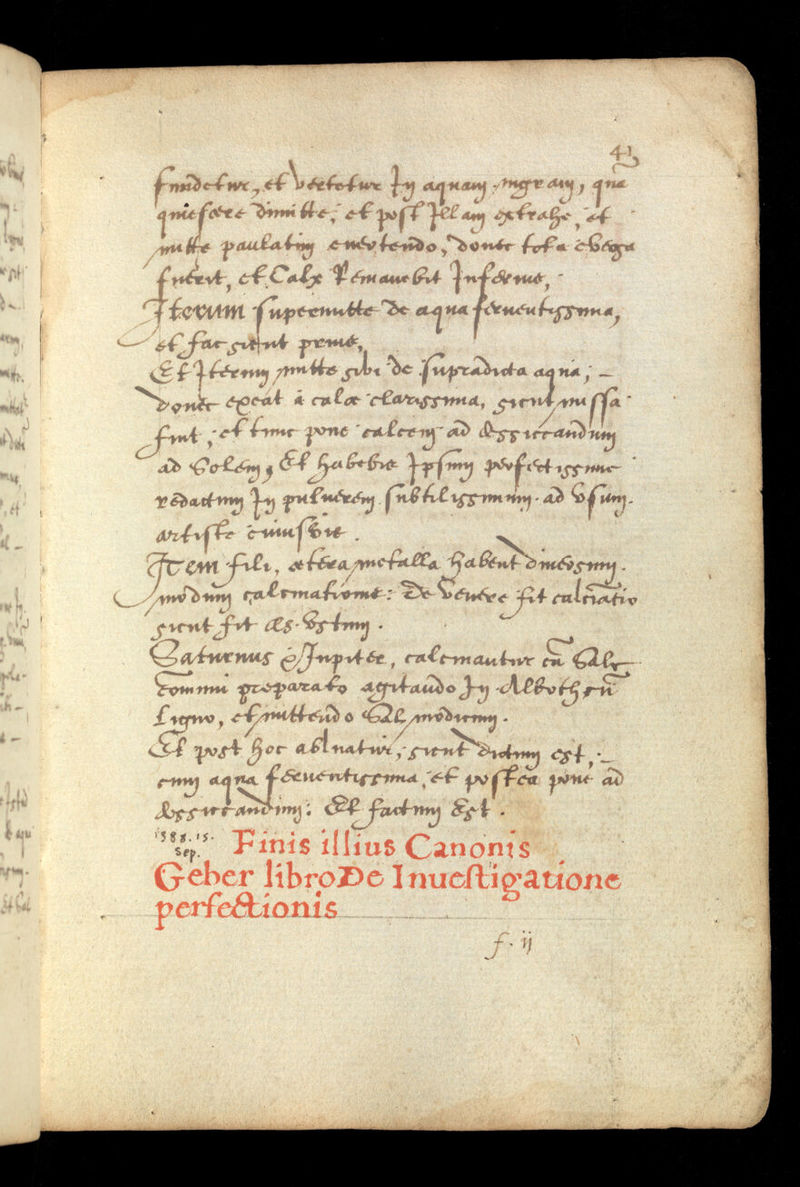 41
fundetur, et vertetur In aquam nigram, quã
quiescere dimitte, et post Illam extrahe, et
mitte paulatim evertendo, donec tota evega
fuerit, et Calx Remanebit Inferius,
Iterum supermitte de aqua ferventissima,
et fac sicut prius,
Et Iterum mitte sibi de supradicta aqua, –
donec exeat à calce clarissima, sicut missa
fuit, et tunc pone calcem ad dessiccandum
ad Solem, Et habebis Ipsum perfectissime
redactum In pulverem subtilissimum ad Vsum
artiste cuiusvis.
Item fili, cetera metalla habent diversum
modum calcinationis: De Venere fit calcinãtio
sicut fit æs Vstum.
Saturnus & Iupiter, calcinantur cũ Sale
commui preparato agitando In Alboth cũ
Ligno, et mittendo Sal modicum.
Et post hoc abluatur, sicut dictum est, –
cum aqua ferventissima, et postea pone ad
dessiccandum: Et factum Est.
1388. 15.
Sep.
Finis illius Canonis
Geber libro De Inuestigatione
perfectionis
f. ij